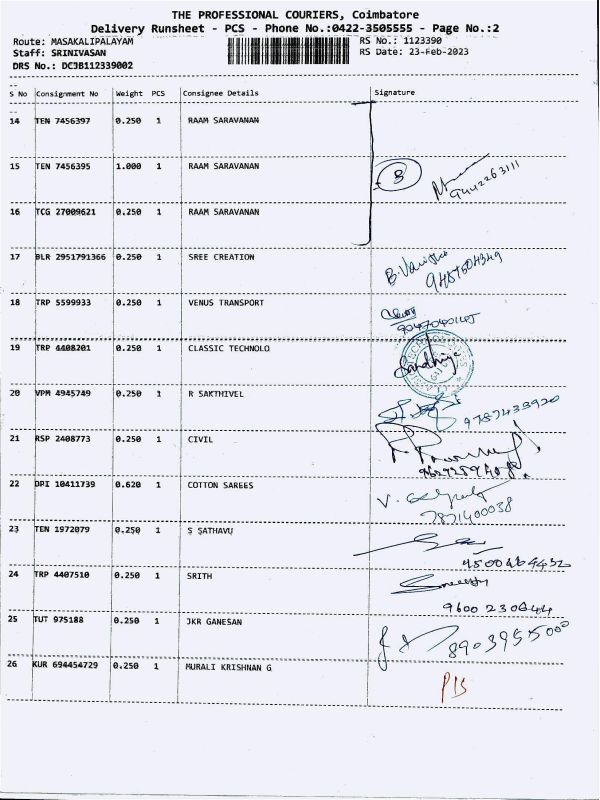 THE PROFESSIONAL COURIERS, Coimbatore
Delivery Runsheet - PCS - Phone No.:0422-3505555 - Page No.:2
Route: MASAKALIPALAYAM RS No.: 1123390
Staff: SRINIVASAN RS Date: 23-Feb-2023
DRS No.: DCJB112339002
S No Consignment No Weight PCS Consignee Details Signature
14 TEN 7456397 0.250 1 RAAM SARAVANAN
15 TEN 7456395 1.000 1 RAAM SARAVANAN 3 9442263111
16 TCG 27009621 0.250 1 RAAM SARAVANAN
17 BLR 2951791366 0.250 1 SREE CREATION
18 TRP 5599933 0.250 1 VENUS TRANSPORT
19 TRP 4408201 0.250 1 CLASSIC TECHNOLO Sandhiya
20 VPM 4945749 0.250 1 R SAKTHIVEL 9787433920
21 RSP 2408773 0.250 1 CIVIL
22 DPI 10411739 0.620 1 COTTON SAREES
7871400038
23 TEN 1972079 0.250 1 S SATHAVU
24 TRP 4407510 0.250 1 SRITH
9600 230644
25 TUT 975188 0.250 1 JKR GANESAN 8903955000
26 KUR 694454729 0.250 1 MURALI KRISHNAN G